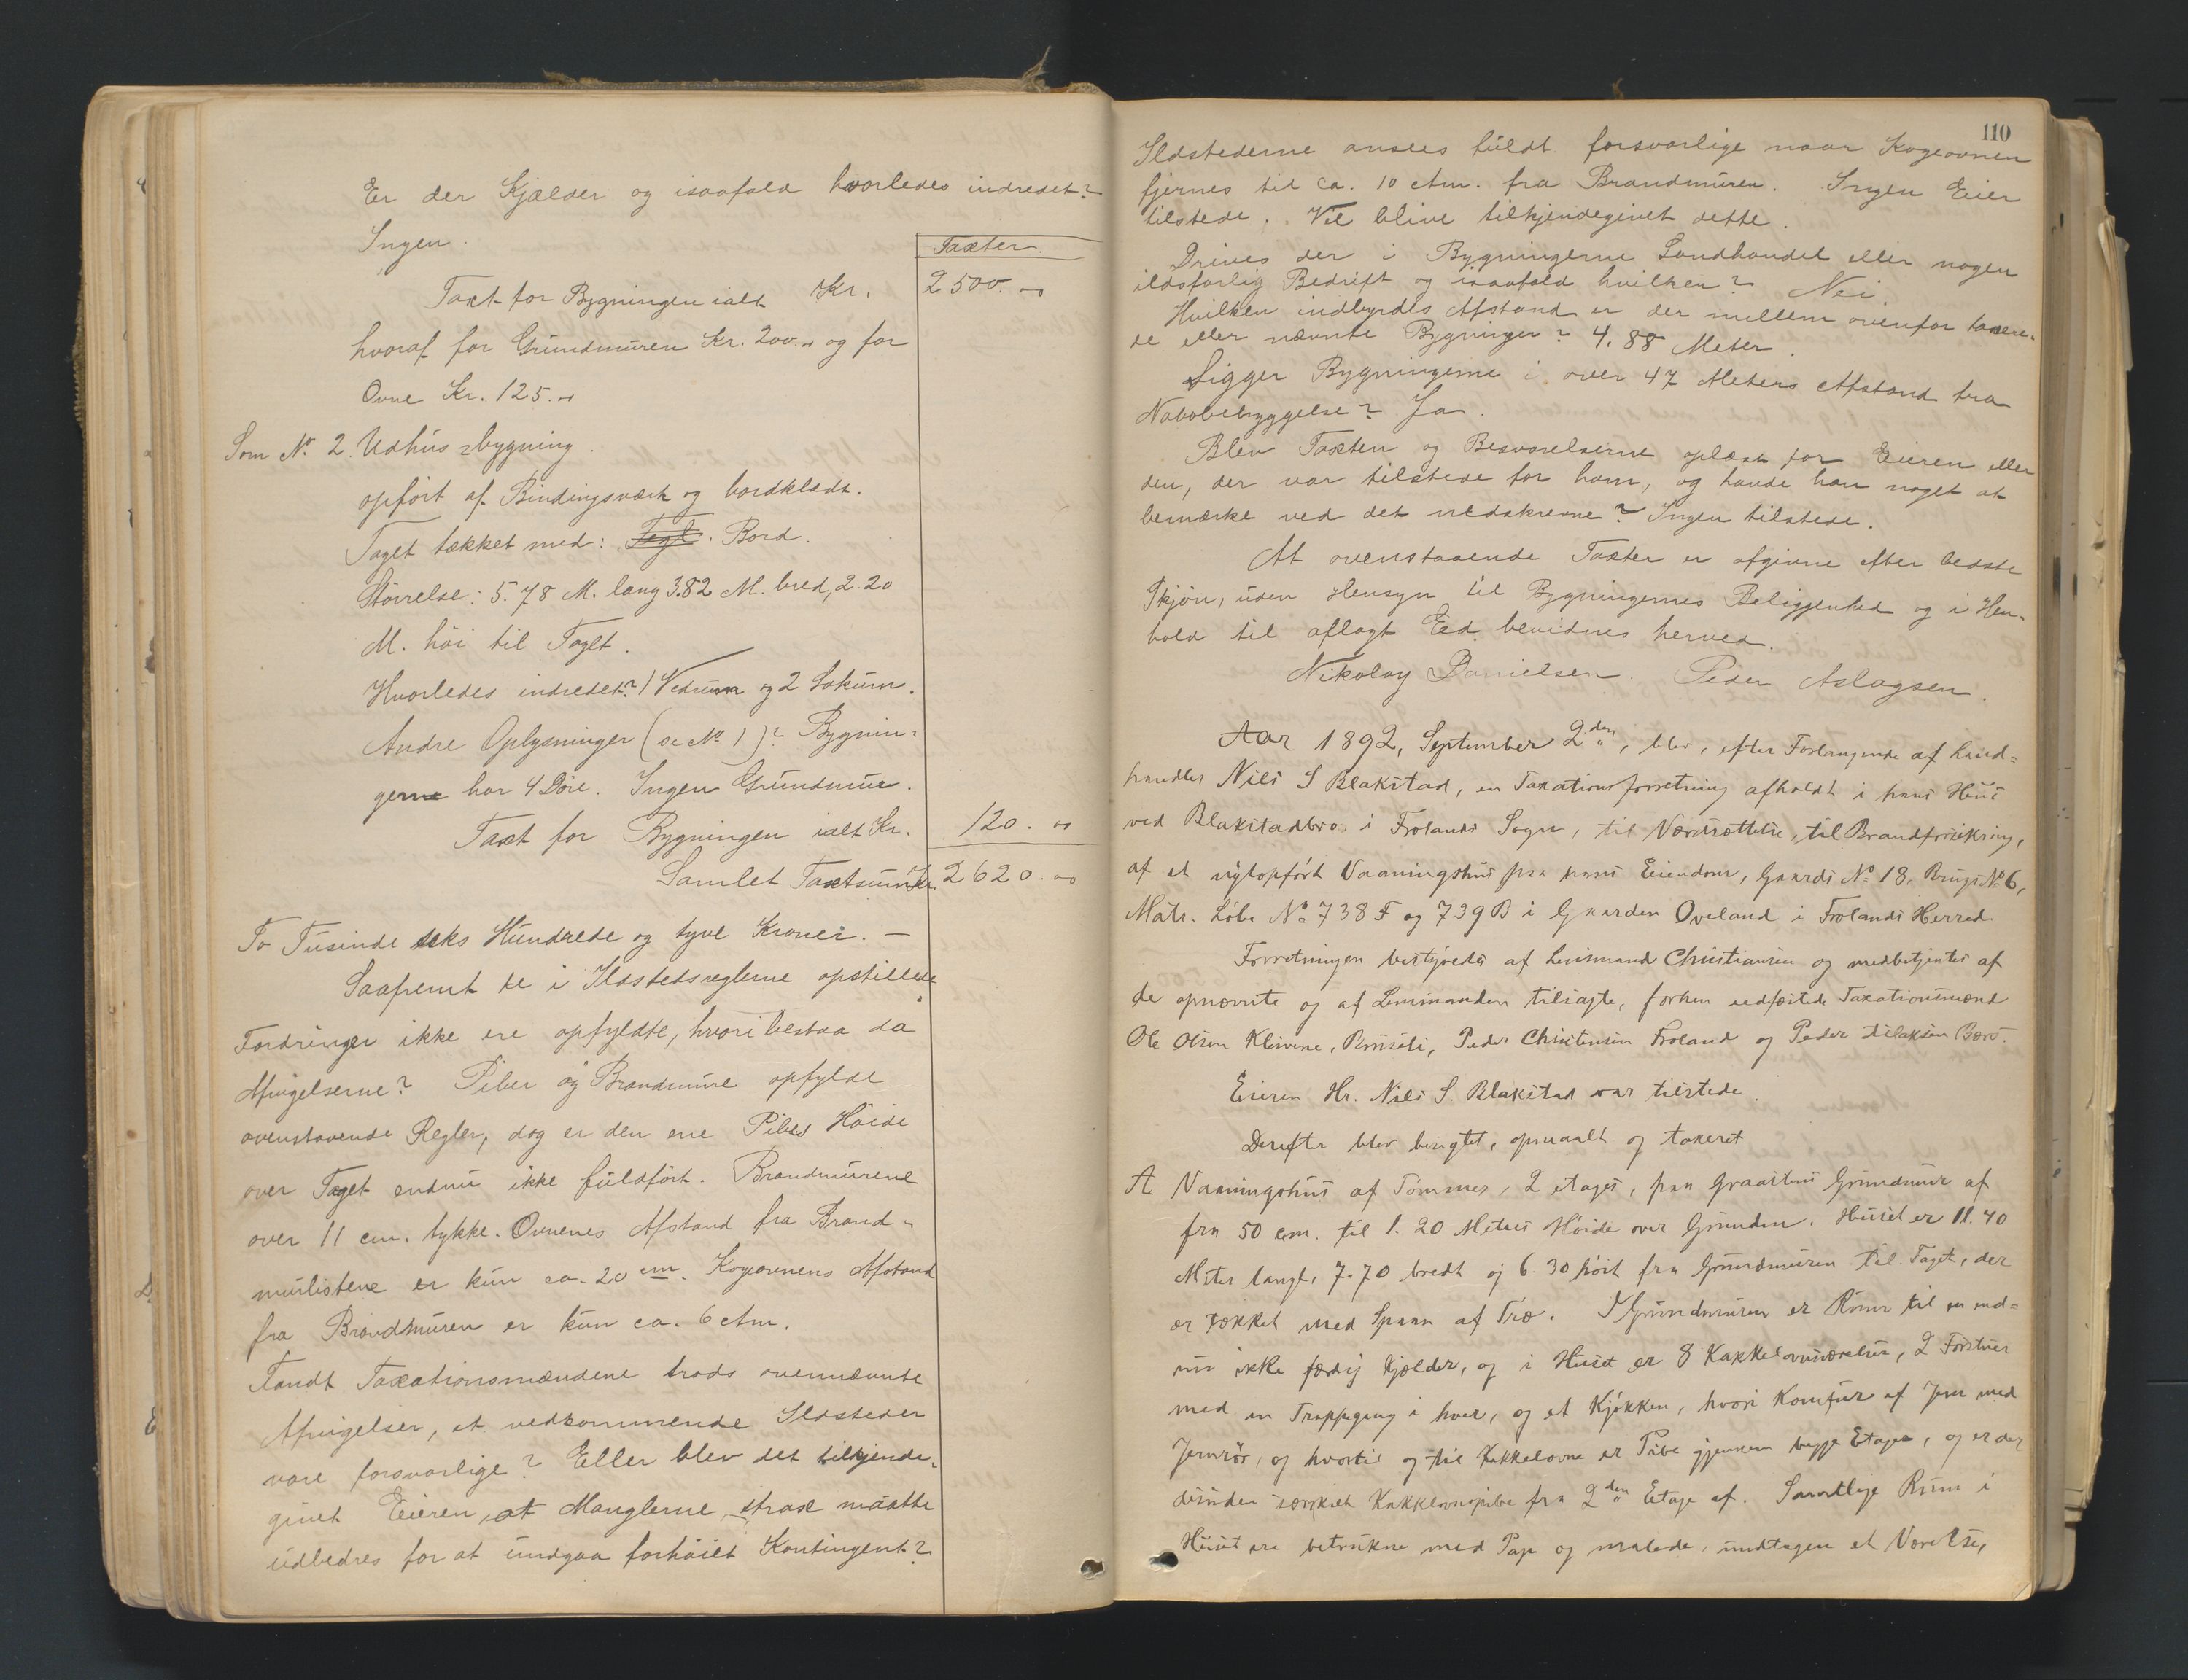 Er der Kjælder og isaafald hvorledes indredet?
Ingen.
Taxter.
Taxt for Bygningen ialt Kr. 2500.00
hvoraf for Grundmuren Kr. 200.00 og for
Ovne Kr. 125.00
Som No. 2. Udhus=bygning.
opført af Bindingsværk og bordklædt.
Taget tækket med: Tegl. Bord.
Størrelse: 5.78 M. lang 3.82 M. bred, 2.20
M. høi til Taget.
Hvorledes indredet? 1 Vedrum og 2 Lokum.
Andre Oplysninger (se No 1)? Bygnin=
gerne har 4 Døre. Ingen Grundmur.
Taxt for Bygningen ialt Kr. 120.00
Samlet Taxtsum Kr. 2620.00
To Tusinde seks Hundrede og tyve Kroner. —
Saafremt de i Ildstedsreglerne opstillede
Fordringer ikke ere opfyldte, hvori bestaa da
Afvigelserne? Piber og Brandmure opfylde
ovenstaaende Regler, dog er den ene Pibes Høide
over Taget endnu ikke fuldført. Brandmurene
over 11 cm. tykke. Ovnenes Afstand fra Brand=
murlistene er kun ca. 20 cm. Kogeovnens Afstand
fra Brandmuren er kun ca. 6 ctm.
Fandt Taxationsmændene trods ovennævnte
Afvigelser, at vedkommende Ildsteder
vare forsvarlige? Eller blev det tilkjende=
givet Eieren, at Manglerne strax maatte
udbedres for at undgaa forhøiet Kontingent?
110
Ildstederne ansees fuldt forsvarlige naar Kogeovnen
fjernes til ca. 10 ctm. fra Brandmuren. Ingen Eier
tilstede. Vil blive tilkjendegivet dette.
Drives der i Bygningerne Landhandel eller nogen
ildsfarlig Bedrift og isaafald hvilken? Nei.
Hvilken indbyrdes Afstand er der mellem ovenfor taxere=
de eller nævnte Bygninger? 4,88 Meter.
Ligger Bygningerne i over 47 Meters Afstand fra
Nabobebyggelse? Ja.
Blev Taxten og Besvarelserne oplæst for Eieren eller
den, der var tilstede for ham, og havde han noget at
bemærke ved det nedskrevne? Ingen tilstede.
At ovenstaaende Taxter er afgivne efter bedste
Skjøn, uden Hensyn til Bygningernes Beliggenhed og i Hen=
hold til aflagt Eed bevidnes herved.
Nikolay Danielsen. Peder Aslagsen.
Aar 1892, September 2den, blev, efter Forlangende af Land=
handler Niels S Blakstad, en Taxationsforretning afholdt i hans Hus
ved Blakstadbro i Frolands Sogn, til Værdsættelse, til Brandforsikring,
af et nyopført Vaaningshus paa hans Eiendom, Gaards No 18, Brugs No 6,
Matr. Løbe No 738 F og 739 B i Gaarden Oveland i Frolands Herred.
Forretningen bestyredes af Lensmand Christiansen og medbetjentes af
de opnævnte og af Lensmanden tilsagte, forhen eedfæstede Taxationsmænd
Ole Olsen Klevene, Peder Christensen Froland og Peder
Eieren Hr. Niels S. Blakstad var tilstede.
Derefter blev besigtet, opmaalt og taxeret
A Vaaningshus af Tømmer, 2 etages, paa Graastens Grundmur af
fra 50 cm. til 1.20 Meters Høide over Grunden. Huset er 11.40
Meter langt, 7.70 bredt og 6.30 høit fra Grundmuren til Taget, der
er tækket med Spaan af Træ. I Grundmuren er Rum til en end=
nu ikke færdig Kjelder, og i Huset er 8 Kakkelovnsværelser, 2 Forstuer
med en Trappegang i hver, og et Kjøkken, hvori Komfur af Jern med
Jernrør, og hvortil og til Kakkelovne er Pibe gjennem begge Etager, og er der
desuden særskilt Kakkelovnspibe fra 2den Etage af. Samtlige Rum i
Huset ere betrukne med Pap og malede, undtagen et Værelse,